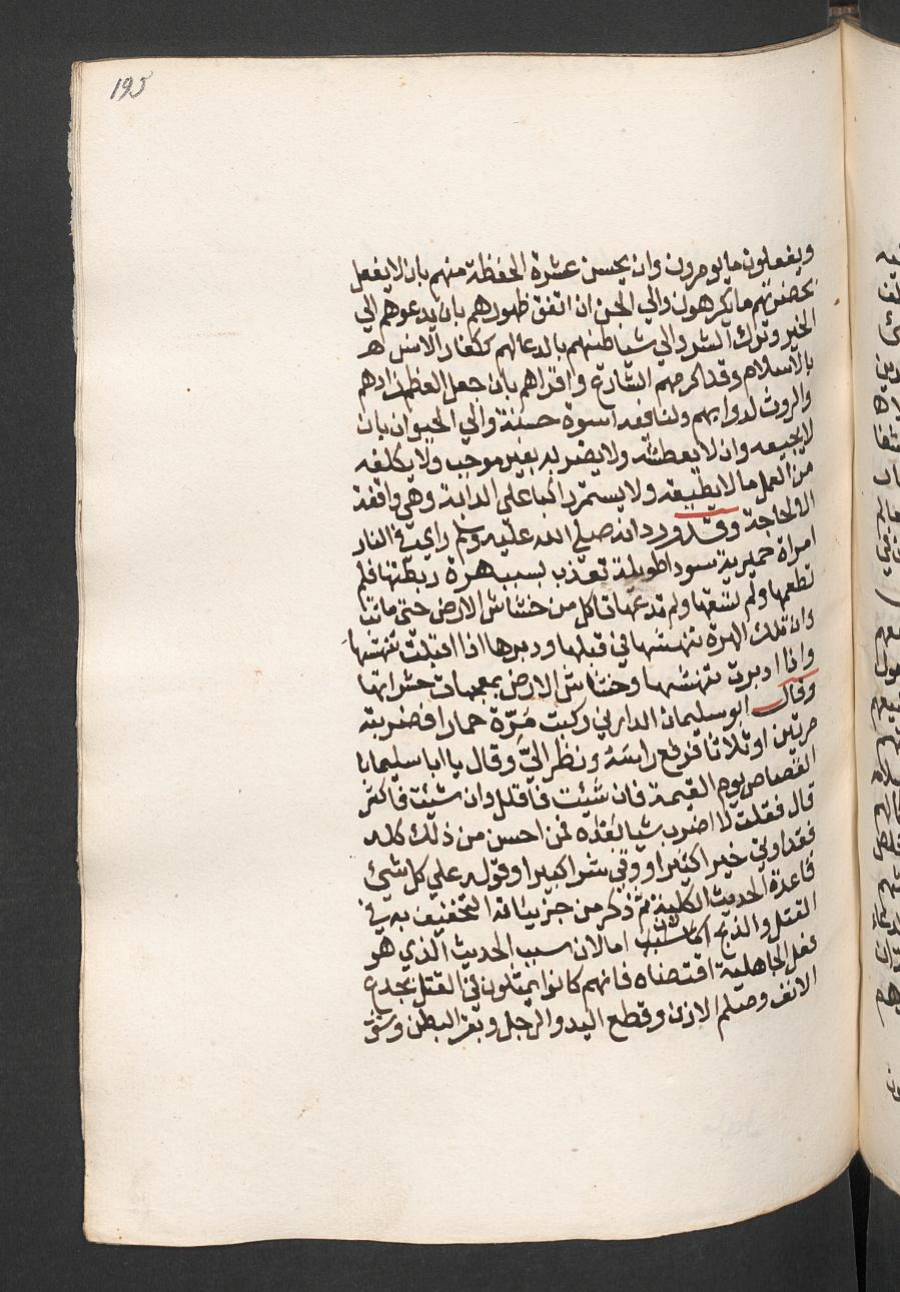 195
ويفعلون ما يومرون وان يحسن عشرة الحفظة منهم بان لا يفعل
بحضرتهم ما يكرهون والي الجن ان اتفق ظهورهم بان يدعوهم الي
الخير وترك الشر والي شياطينهم بالدعا لهم ككفار الانس
بالاسلام وقد اكرمهم الشارع واقراهم بان جعل العظم زادهم
والروث لدوابهم ولنا فيه اسوة حسنة والي الحيوان بان
لا يجيعه وان لا يعطشه ولا يضر به بغير موجب ولا يكلفه
من العمل ما لا يطيقه ولا يستمر راكبا على الدابة وهي واقفة
الا لحاجة وقد ورد انه صلي الله عليه وسلم راي في النار
امراة حميرية سودا طويلة تعذب بسبب هرة ربطتها فلم
تطعمها ولم تسقها ولم تدعها تاكل من خشاش الارض حتى ماتتا
وان تلك الهرة تنهشها في قبلها ودبرها اذا اقبلت تنهشها
واذا ادبرت تنهشها وخشاش الارض بمعجمات حشراتها
وقال ابو سليمان الداريني ركبت مرة حمارا فضربته
مرتين او ثلاثا فرفع راسه ونظر الي وقال يا ابا سليمان
القصاص يوم القيمة فان شيت فاقلل وان شيت فاكثر
قال فقلت لا اضرب شيا بعده فمن احسن من ذلك كله
فقد اوتي خيرا كثيرا ووقي شرا كبيرا وقوله علي كل شي
قاعدة الحديث الكلية ثم ذكر من جزيياته التخفيف به في
القتل والذبح اما لان سبب الحديث الذي هو
فعل الجاهلية اقتضاه فانهم كانوا يمثلون في القتل بجدع
الانف وصلم الاذن وقطع اليد والرجل وبقر البطن وشق